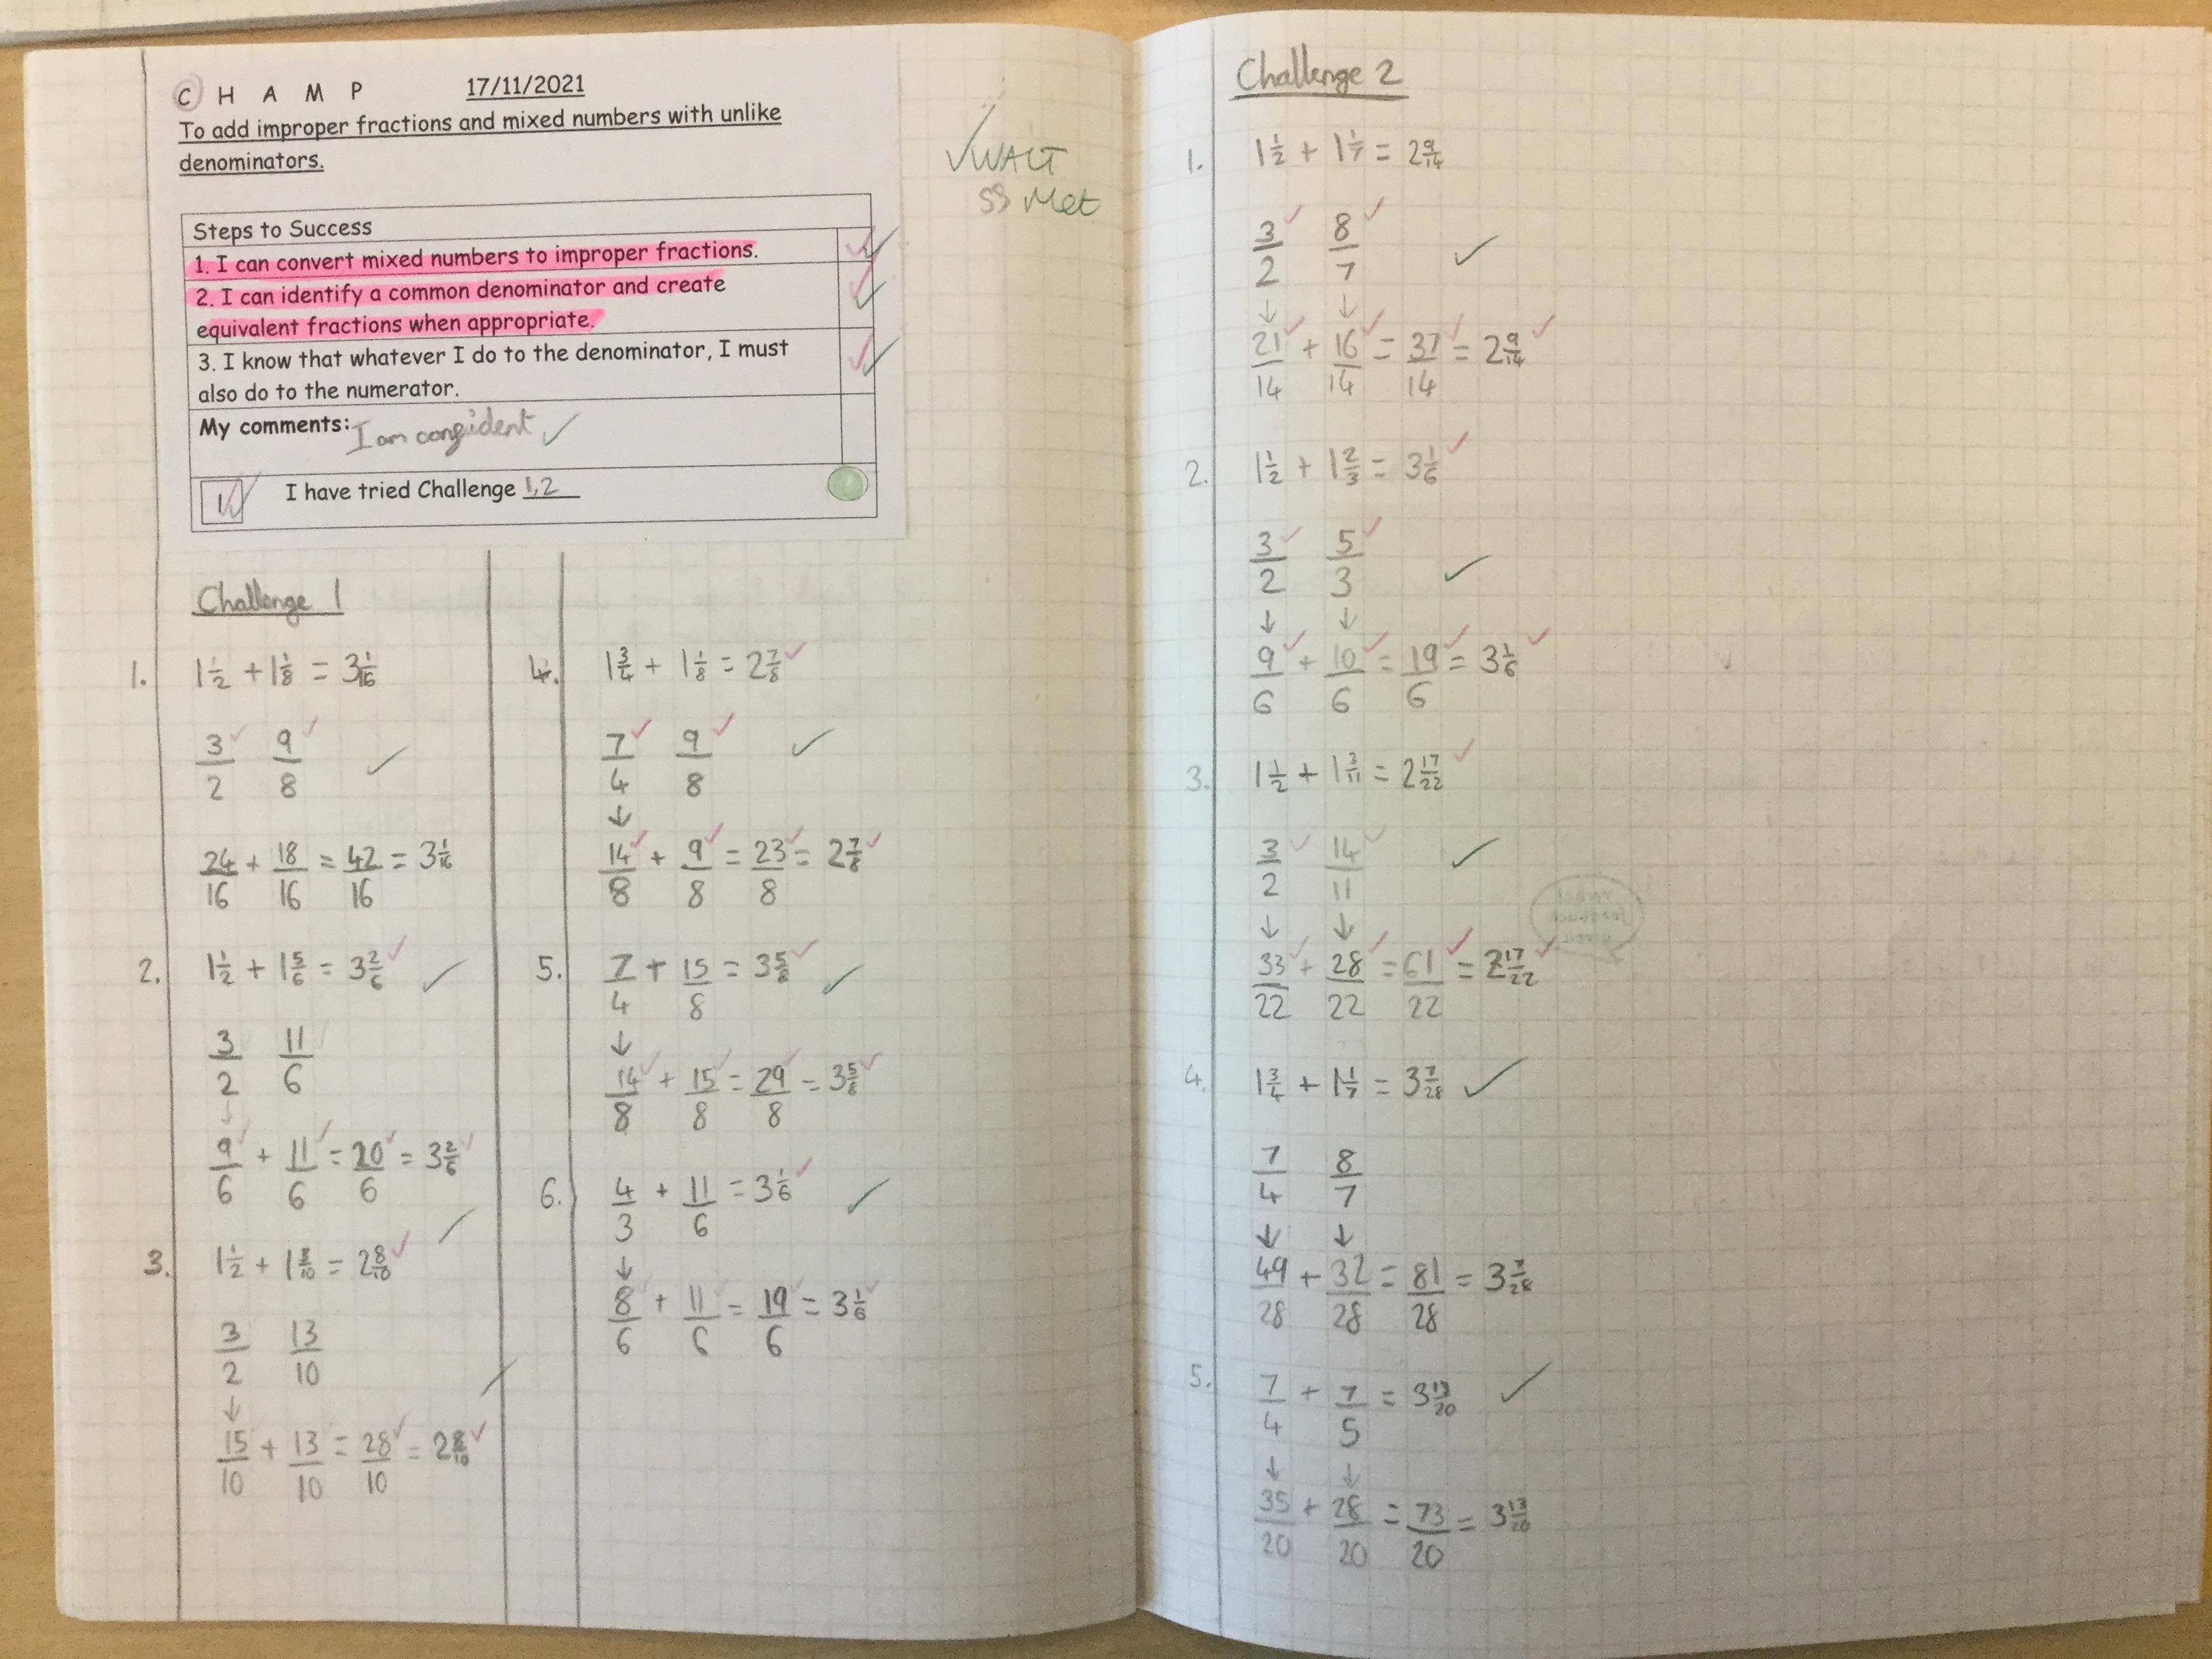 C H A M P 17/11/2021
To add improper fractions and mixed numbers with unlike
denominators.
Steps to Success
1. I can convert mixed numbers to improper fractions.
2. I can identify a common denominator and create
equivalent fractions when appropriate.
3. I know that whatever I do to the denominator, I must
also do to the numerator.
My comments: I am confident ✓
1 I have tried Challenge 1,2
✓WALT
SS Met
Challenge 1
1. 1 1/2 + 1 1/8 = 3 1/16
3/2 9/8
24/16 + 18/16 = 42/16 = 3 1/16
2. 1 1/2 + 1 5/6 = 3 2/6
3/2 11/6
9/6 + 11/6 = 20/6 = 3 2/6
3. 1 1/2 + 1 3/10 = 2 8/10
3/2 13/10
15/10 + 13/10 = 28/10 = 2 8/10
4. 1 3/4 + 1 1/8 = 2 7/8
7/4 9/8
14/8 + 9/8 = 23/8 = 2 7/8
5. 7/4 + 15/8 = 3 5/8
14/8 + 15/8 = 29/8 = 3 5/8
6. 4/3 + 11/6 = 3 1/6
8/6 + 11/6 = 19/6 = 3 1/6
Challenge 2
1. 1 1/2 + 1 1/7 = 2 9/14
3/2 8/7
21/14 + 16/14 = 37/14 = 2 9/14
2. 1 1/2 + 1 2/3 = 3 1/6
3/2 5/3
9/6 + 10/6 = 19/6 = 3 1/6
3. 1 1/2 + 1 3/11 = 2 17/22
3/2 14/11
33/22 + 28/22 = 61/22 = 2 17/22
4. 1 3/4 + 1 1/7 = 3 7/28
7/4 8/7
49/28 + 32/28 = 81/28 = 3 7/28
5. 7/4 + 7/5 = 3 13/20
35/20 + 28/20 = 73/20 = 3 13/20